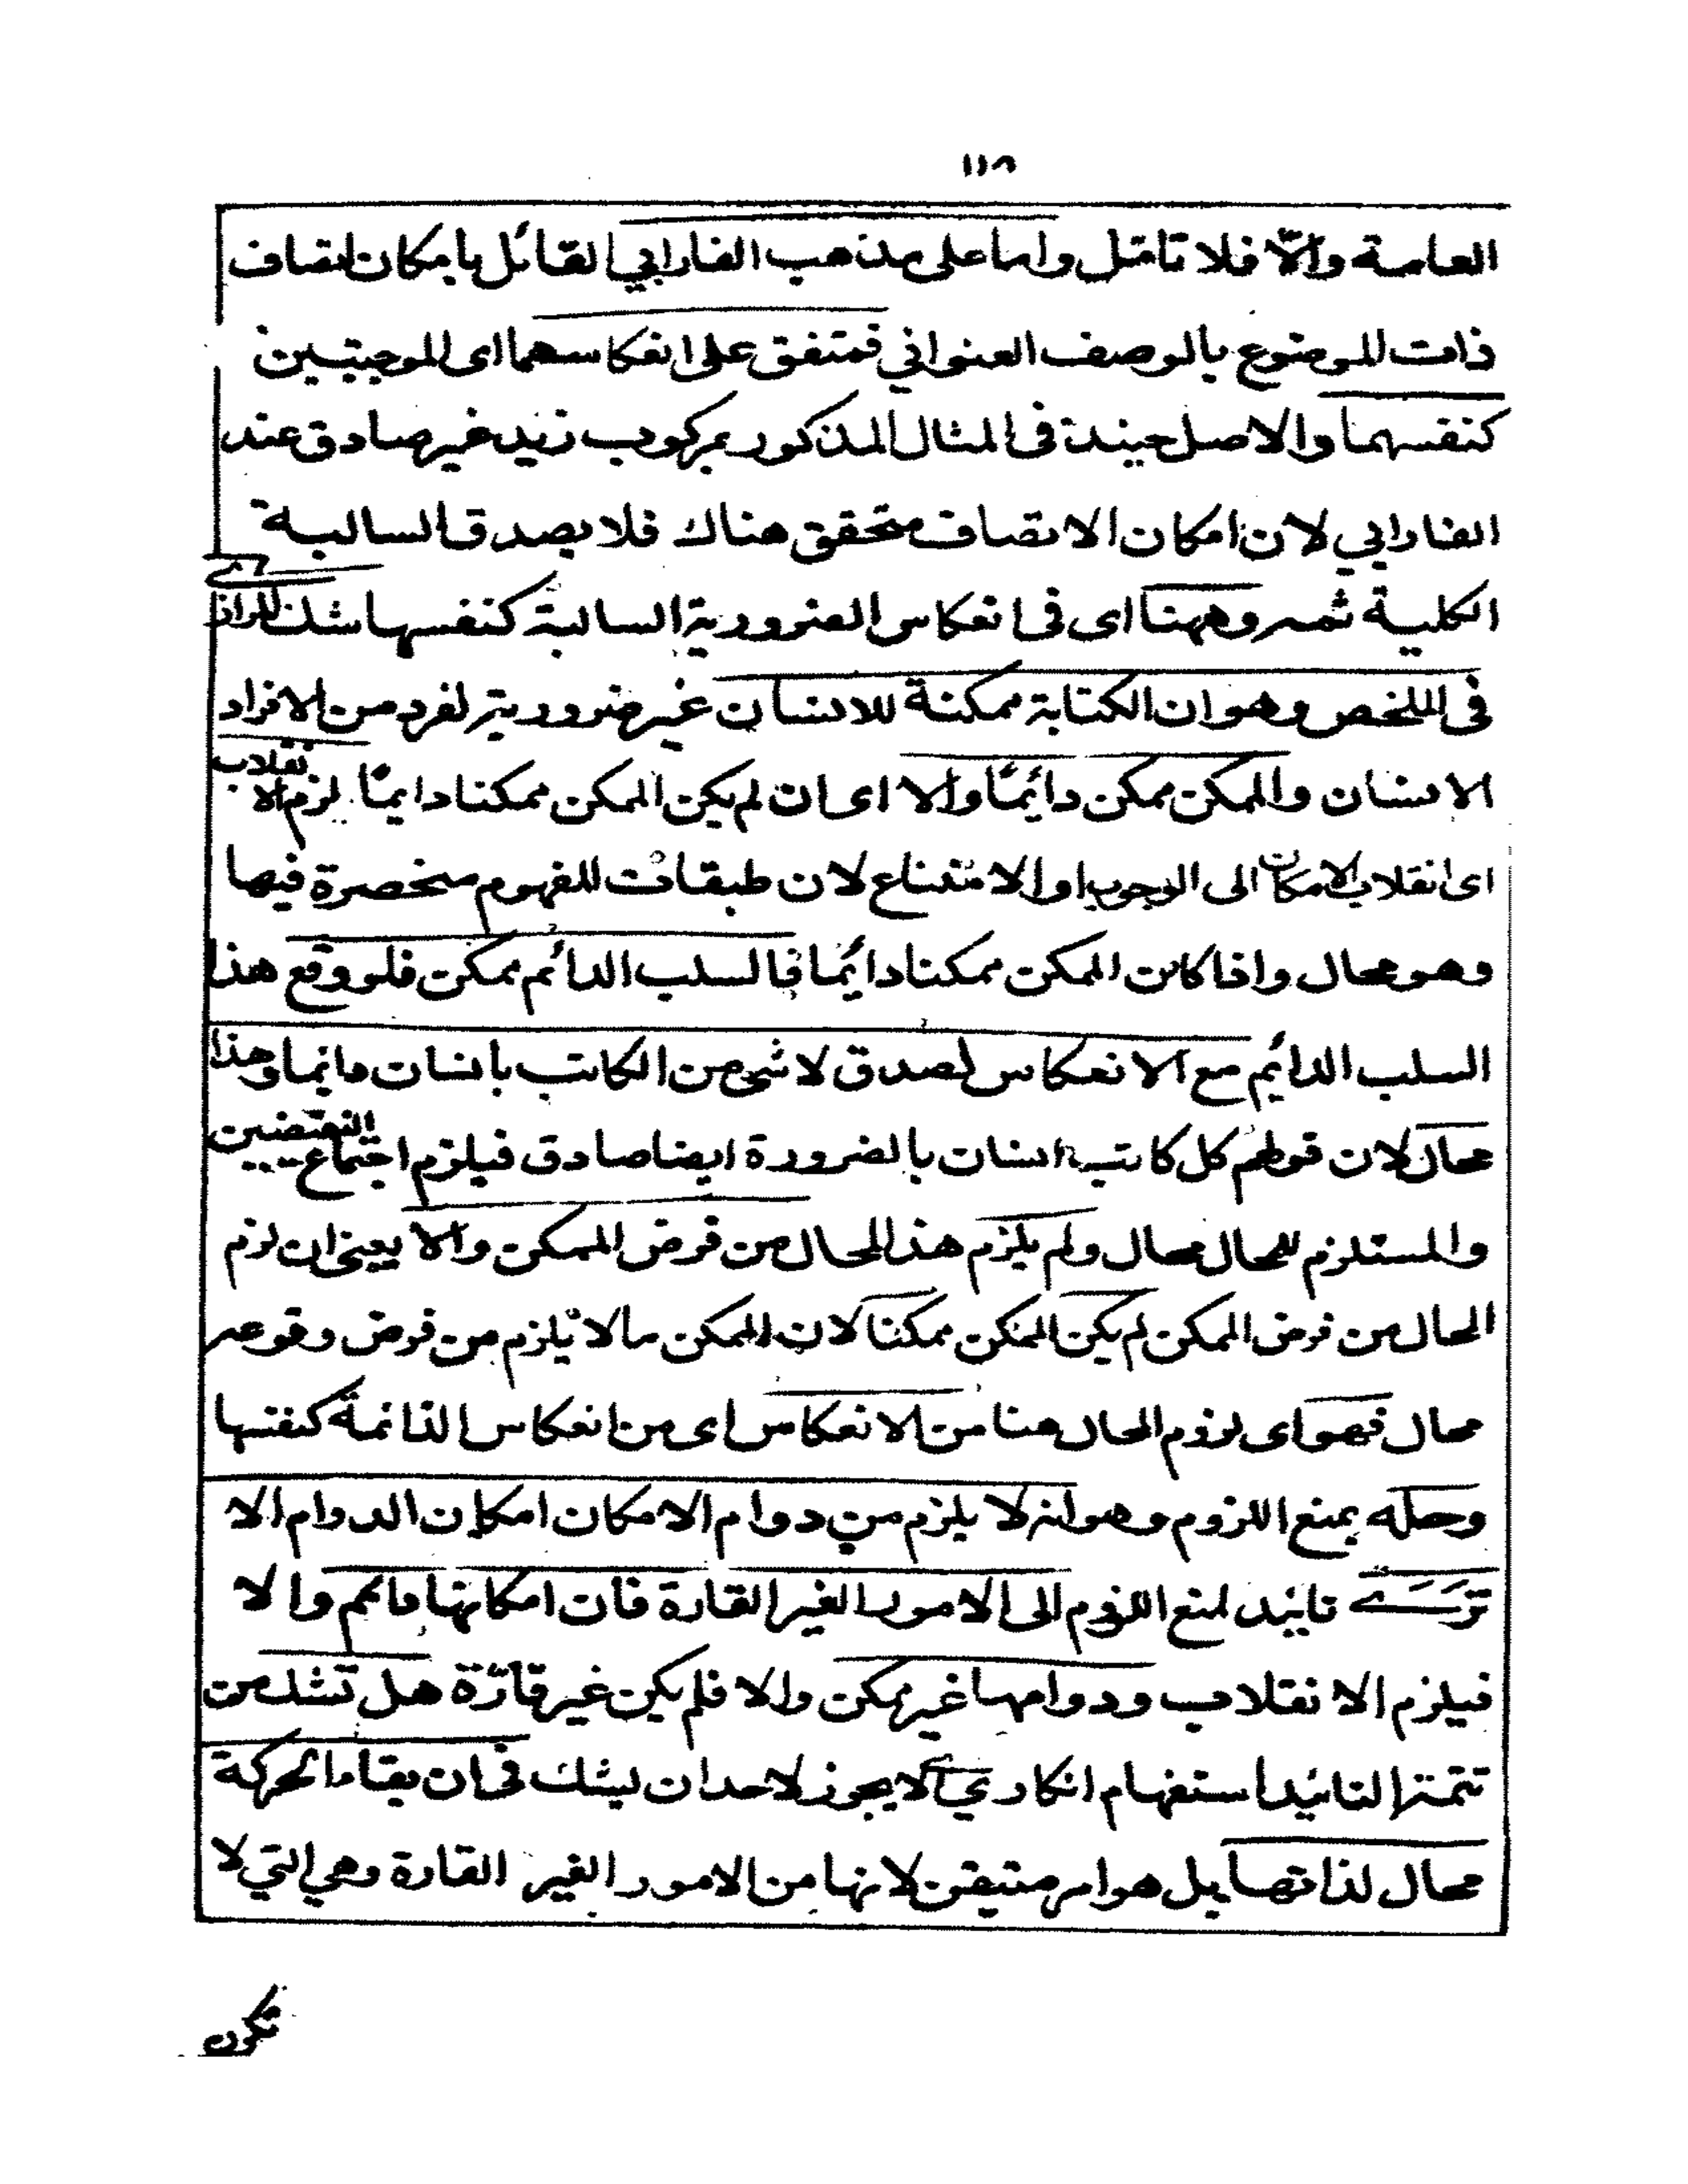 ١١٨
العامة والّا فلا تامّل واما على مذهب الفارابي القائل بامكان اتصاف
ذات الموضوع بالوصف العنواني فمتفق على انعكاسهما اى الموجبتين
كنفسهما والاصل حينئذ فى المثال المذكور بمركوب زيد غير صادق عند
الفارابي لان امكان الاتصاف متحقق هناك فلا يصدق السالبة
الكلية ثمه وههنا اى فى انعكاس الضرورية السالبة كنفسها شك للرازى
فى الملخص وهو ان الكتابة ممكنة للانسان غير ضرورية لفرد من الافراد
الانسان والممكن ممكن دائمًا والا اى ان لم يكن الممكن ممكنا دايمًا لزم الانقلاب
اى انقلاب الامكان الى الوجوب او الامتناع لان طبقات المفهوم منحصرة فيها
وهو محال واذا كان الممكن ممكنا دائما فالسلب الدائم ممكن فلو وقع هذا
السلب الدائم مع الانعكاس لصدق لا شئ من الكاتب بانسان دائما وهذا
محال لان قولهم كل كاتب انسان بالضرورة ايضا صادق فيلزم اجتماع النقيضين
والمستلزم للمحال محال ولم يلزم هذا المحال من فرض الممكن والا يعنى ان لزم
المحال من فرض الممكن لم يكن الممكن ممكنا لان الممكن ما لا يلزم من فرض وقوعه
محال فهو اى لزوم المحال هنا من الانعكاس اى من انعكاس الدائمة كنفسها
وحله بمنع اللزوم وهو انه لا يلزم من دوام الامكان امكان الدوام الا
ترى تائيد لمنع اللزوم الى الامور الغير القارة فان امكانها دائم والا
فيلزم الانقلاب ودوامها غير ممكن والا فلم يكن غير قارّة هل تشك من
تتمة التائيد استفهام انكاري اى لا يجوز لاحد ان يشك فى ان بقاء الحركة
محال لذاتها بل هو امر متيقن لانها من الامور الغير القارة وهي التي لا
تكون